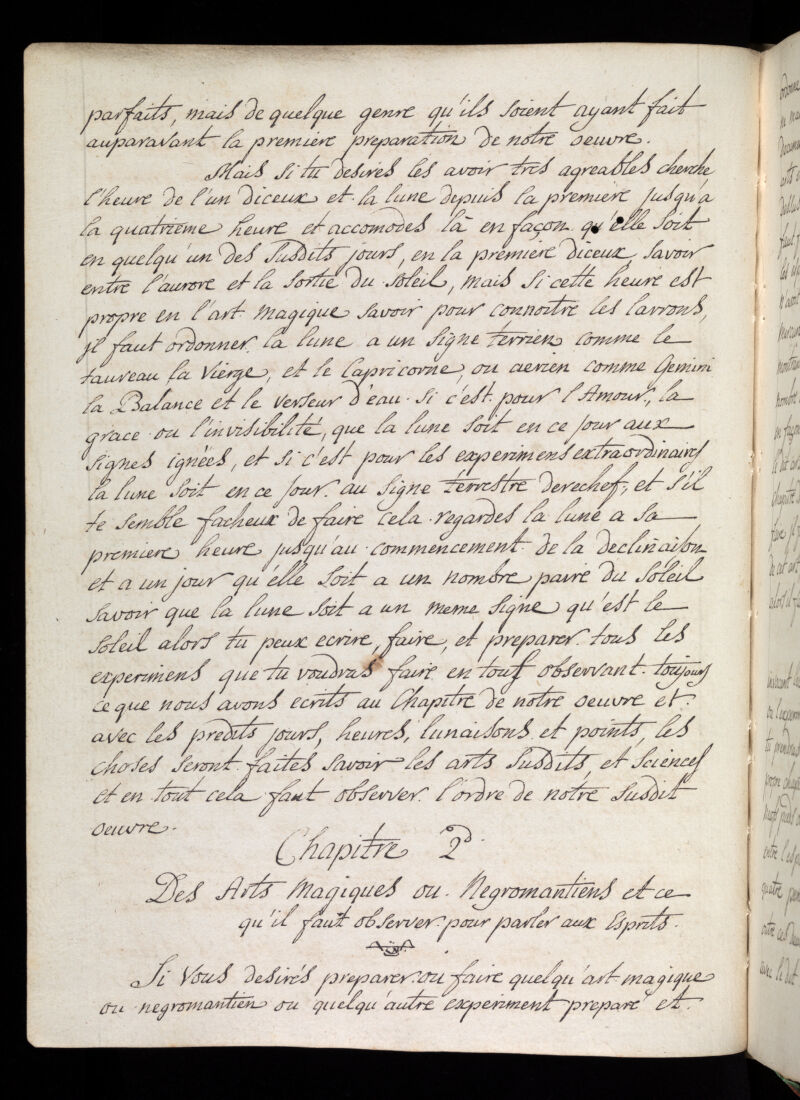 parfaits, mais de quelque genre qu'ils soient ayant fait
auparavant la premiere preparation de notre oeuvre.
Mais si tu desires les avoir tres agreables cherche
l'heure de l'un diceux et la lune depuis la premiere jusqu'a
la quatrieme heure et accomodes là en façon qu'elle soit
en quelqu'un des susdits jours, en la premiere diceux, savoir
entre l'aurore et la sortie du soleil, mais si cette heure est
propre en l'art magique savoir pour connoitre les larrons,
il faut ordonner la lune a un signe terrien comme le
taureau la Vierge, et le Capricorne, ou aerien comme Gemini
la Balance et le verseur d'eau. si c'est pour l'Amour, la
grace ou l'invisibilité, que la lune soit en ce jour aux
signes ignées, et si c'est pour les experimens extraordinaires
la lune soit en ce jour au signe terrestre derechef, et s'il
te semble facheux de faire cela regardes la lune a sa
premiere heure jusqu'au commencement de la declinaison
et a un jour qu'elle soit a un nombre paire du Soleil
savoir que la lune soit a un meme signe qu'est le
soleil alors tu peux ecrire, faire, et preparer tous les
experimens que tu voudras faire en tout observant toujours
ce que nous avons ecrits au Chapitre de notre oeuvre et
avec les predits jours, heures, lunaisons et points, les
choses seront faites savoir les arts susdits et Sciences
et en tout cela faut observer l'ordre de notre susdit
oeuvre.
Chapitre 2d.
Des Arts Magiques ou Negromantiens et ce
qu'il faut observer pour parler aux Esprits.
Si Vous desirés preparer ou faire quelqu'art magique
ou negromantien ou quelqu'autre experiment preparé et